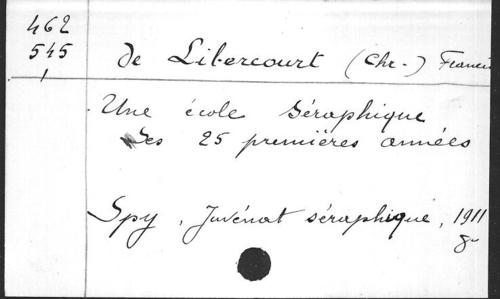 462
545
1
de Libercourt (Chr.) Francis
Une école séraphique
Ses 25 premières années
Spy, Juvénat séraphique, 1911
8°